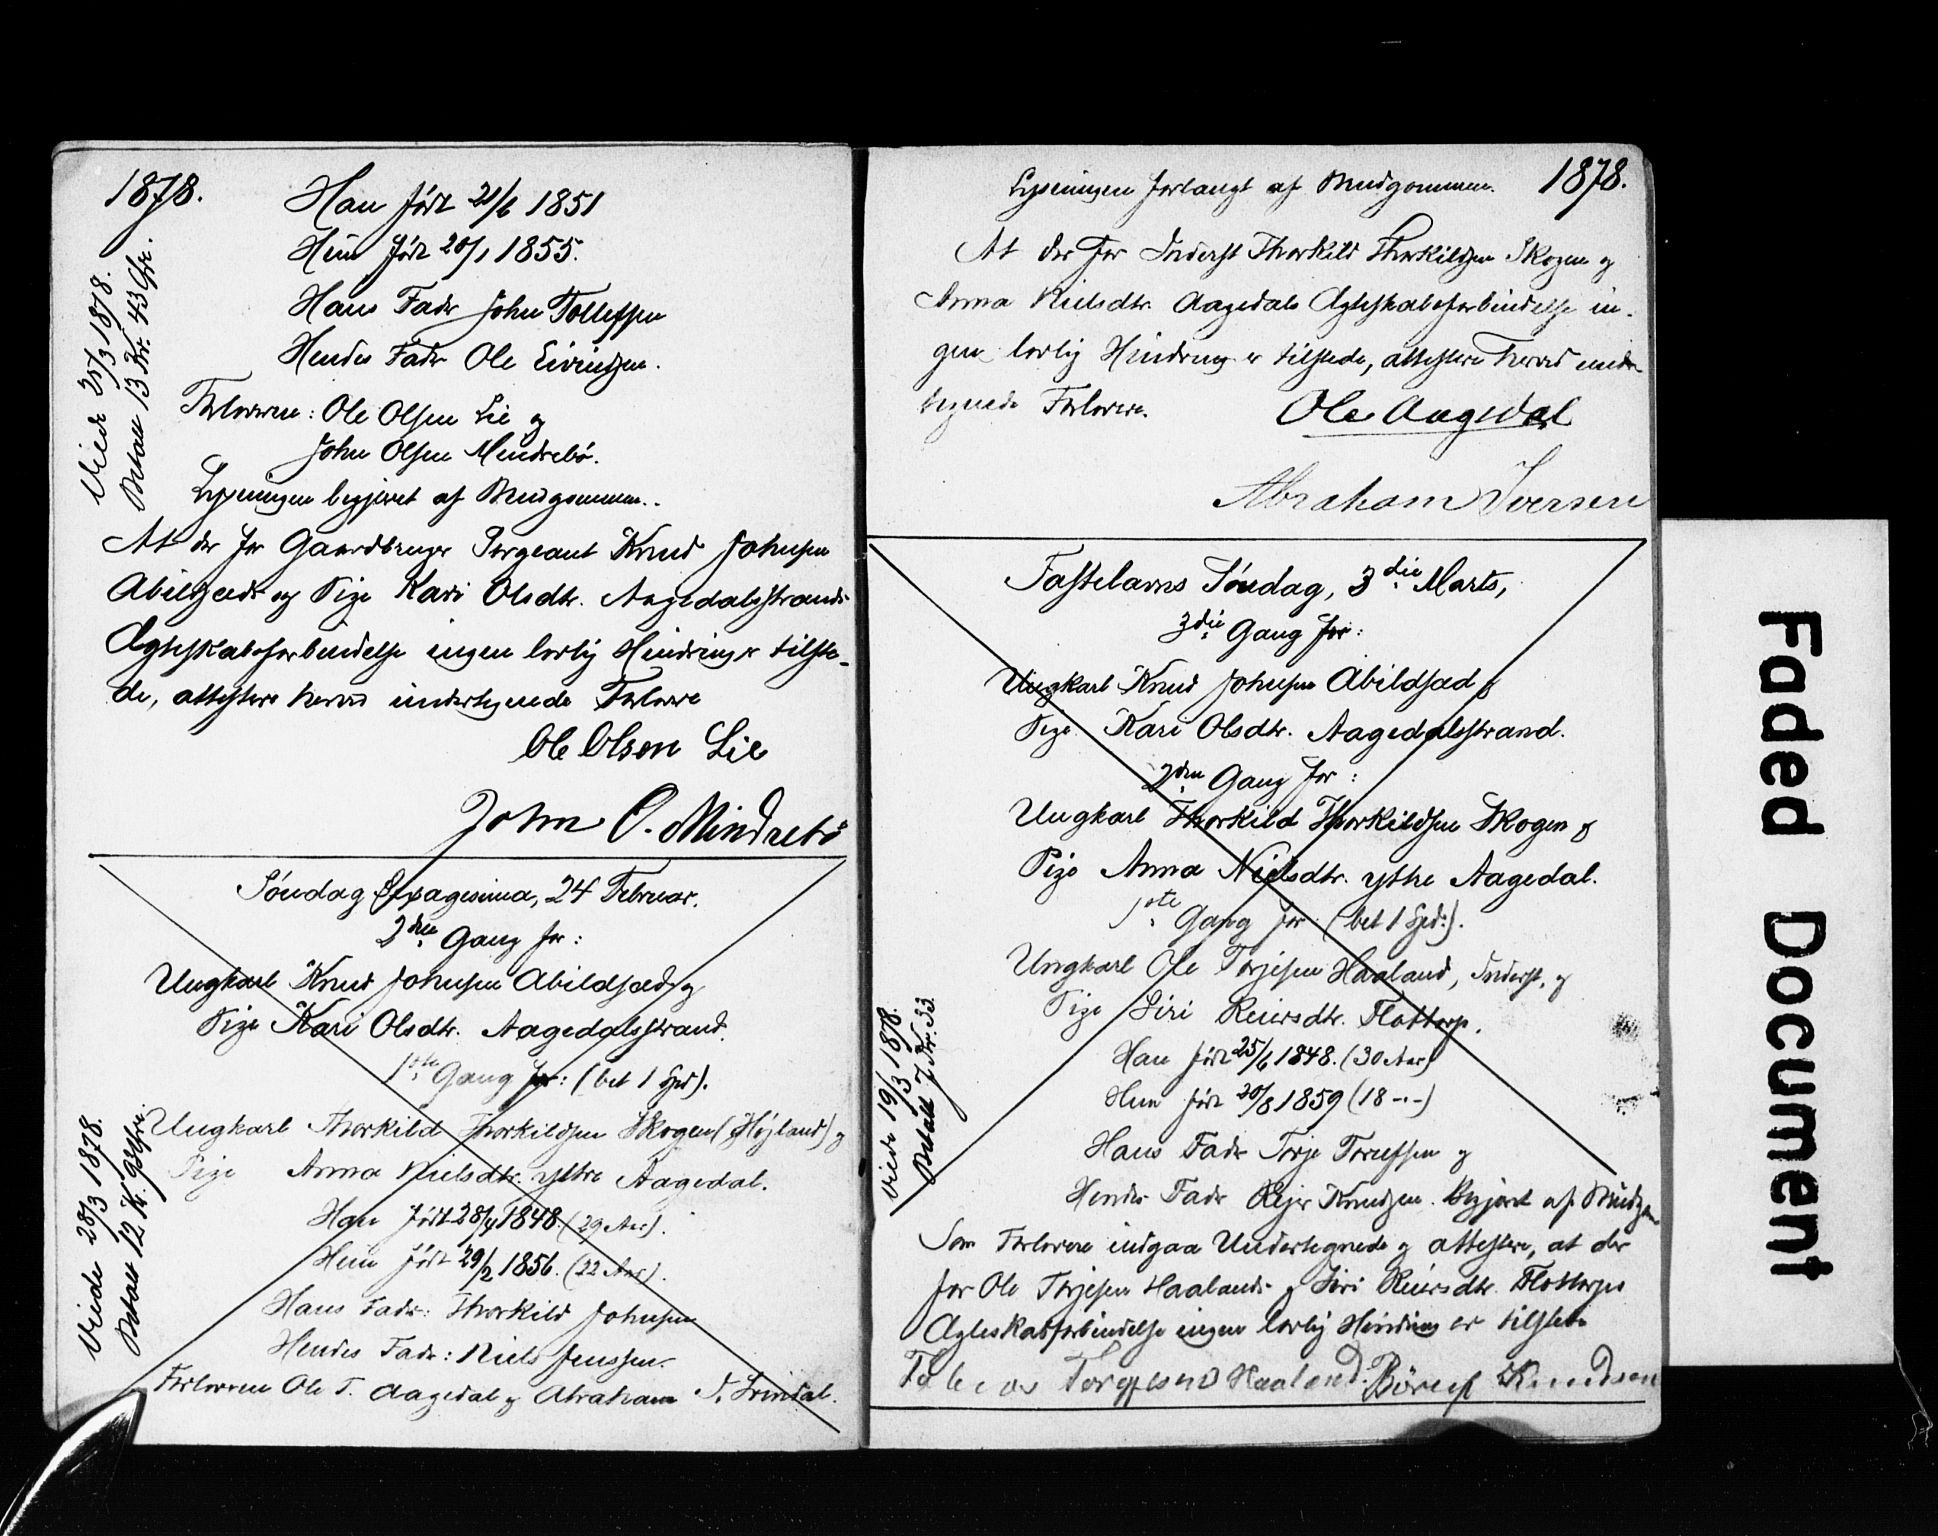 1878.
Han født 21/6 1851
Hun født 20/1 1855.
Hans Fader John Tollefsen
Hendes Fader Ole Eivindsen.
Forlovere: Ole Olsen Lie og
John Olsen Mindrebø.
Lysningen begjæret af Brudgommen.
At der for Gaardbruger Sergeant Knud Johnsen
Abildsæds og Pige Kari Olsdtr. Aagedalsstrands
Ægteskabsforbindelse ingen lovlig Hindring er tilste-
de, attestere herved undertegnede Forlovere
Ole Olsen Lie
John O. Mindrebø
Viede 25/3 1878.
Betalt 13 Kr. 43 Øre.
Søndag Sexagesima, 24 Februar.
2den Gang for:
Ungkarl Knud Johnsen Abildsæd og
Pige Kari Olsdtr. Aagedalsstrand.
1ste Gang for: (bet 1 Spd).
Ungkarl Thorkild Thorkildsen Skogen (Højland) og
Pige Anna Nielsdtr. ytre Aagedal.
Han født 28/4 1848. (29 Aar).
Hun født 29/2 1856. (22 Aar).
Hans Fader: Thorkild Johnsen
Hendes Fader: Niels Jenssen.
Forlovere Ole T. Aagedal og Abraham I.
Viede 28/3 1878.
Betalt 12 K.
Lysningen forlangt af Brudgommen.
1878.
At der for Inderst Thorkild Thorkildsen Skogen og
Anna Nielsdtr. Aagedals Ægteskabsforbindelse in-
gen lovlig Hindring er tilstede, attestere herved under-
tegnede Forlovere.
Ole Aagedal
Abraham Iversen
Fastelavns Søndag, 3die Marts,
3die Gang for:
Ungkarl Knud Johnsen Abildsæd og
Pige Kari Olsdtr. Aagedalsstrand.
2den Gang for:
Ungkarl Thorkild Thorkildsen Skogen og
Pige Anna Nielsdtr. ytre Aagedal.
1ste Gang for (bet 1 Spd.).
Ungkarl Ole Torjesen Haaland, Inderst, og
Pige Siri Reiersdtr. Flottorp.
Han født 25/6 1848. (30 Aar)
Hun født 20/8 1859 (18 -"-)
Hans Fader Torje
Hendes Fader Rejer Knudsen. Begjært af Brudgom
Som Forlovere indgaa Undertegnede og attestere, at der
for Ole Torjesen Haalands og Siri Reiersdtr. Flottorps
Ægteskabsforbindelse ingen lovlig Hindring er tilstede
Tobias Torgjesen Haaland. Børuf Knudsen
Viede 19/3 1878.
Betalt 7 Kr. 33.
Faded Document